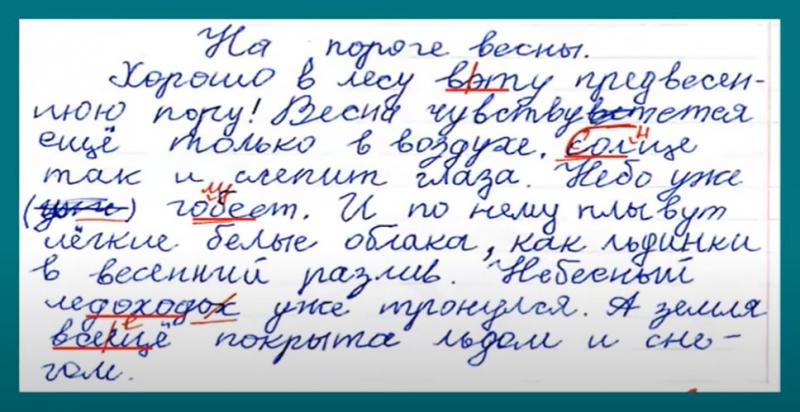 На пороге весны.
Хорошо в лесу вэту предвесен-
нюю пору! Весна чувствувстется
ещё только в воздухе. солнце
так и слепит глаза. Небо уже
(уже) голубеет. И по нему плывут
лёгкие белые облака, как льдинки
в весенний разлив. Небесный
ледоходох уже тронулся. А земля
покрыта льдом и сне-
гом.